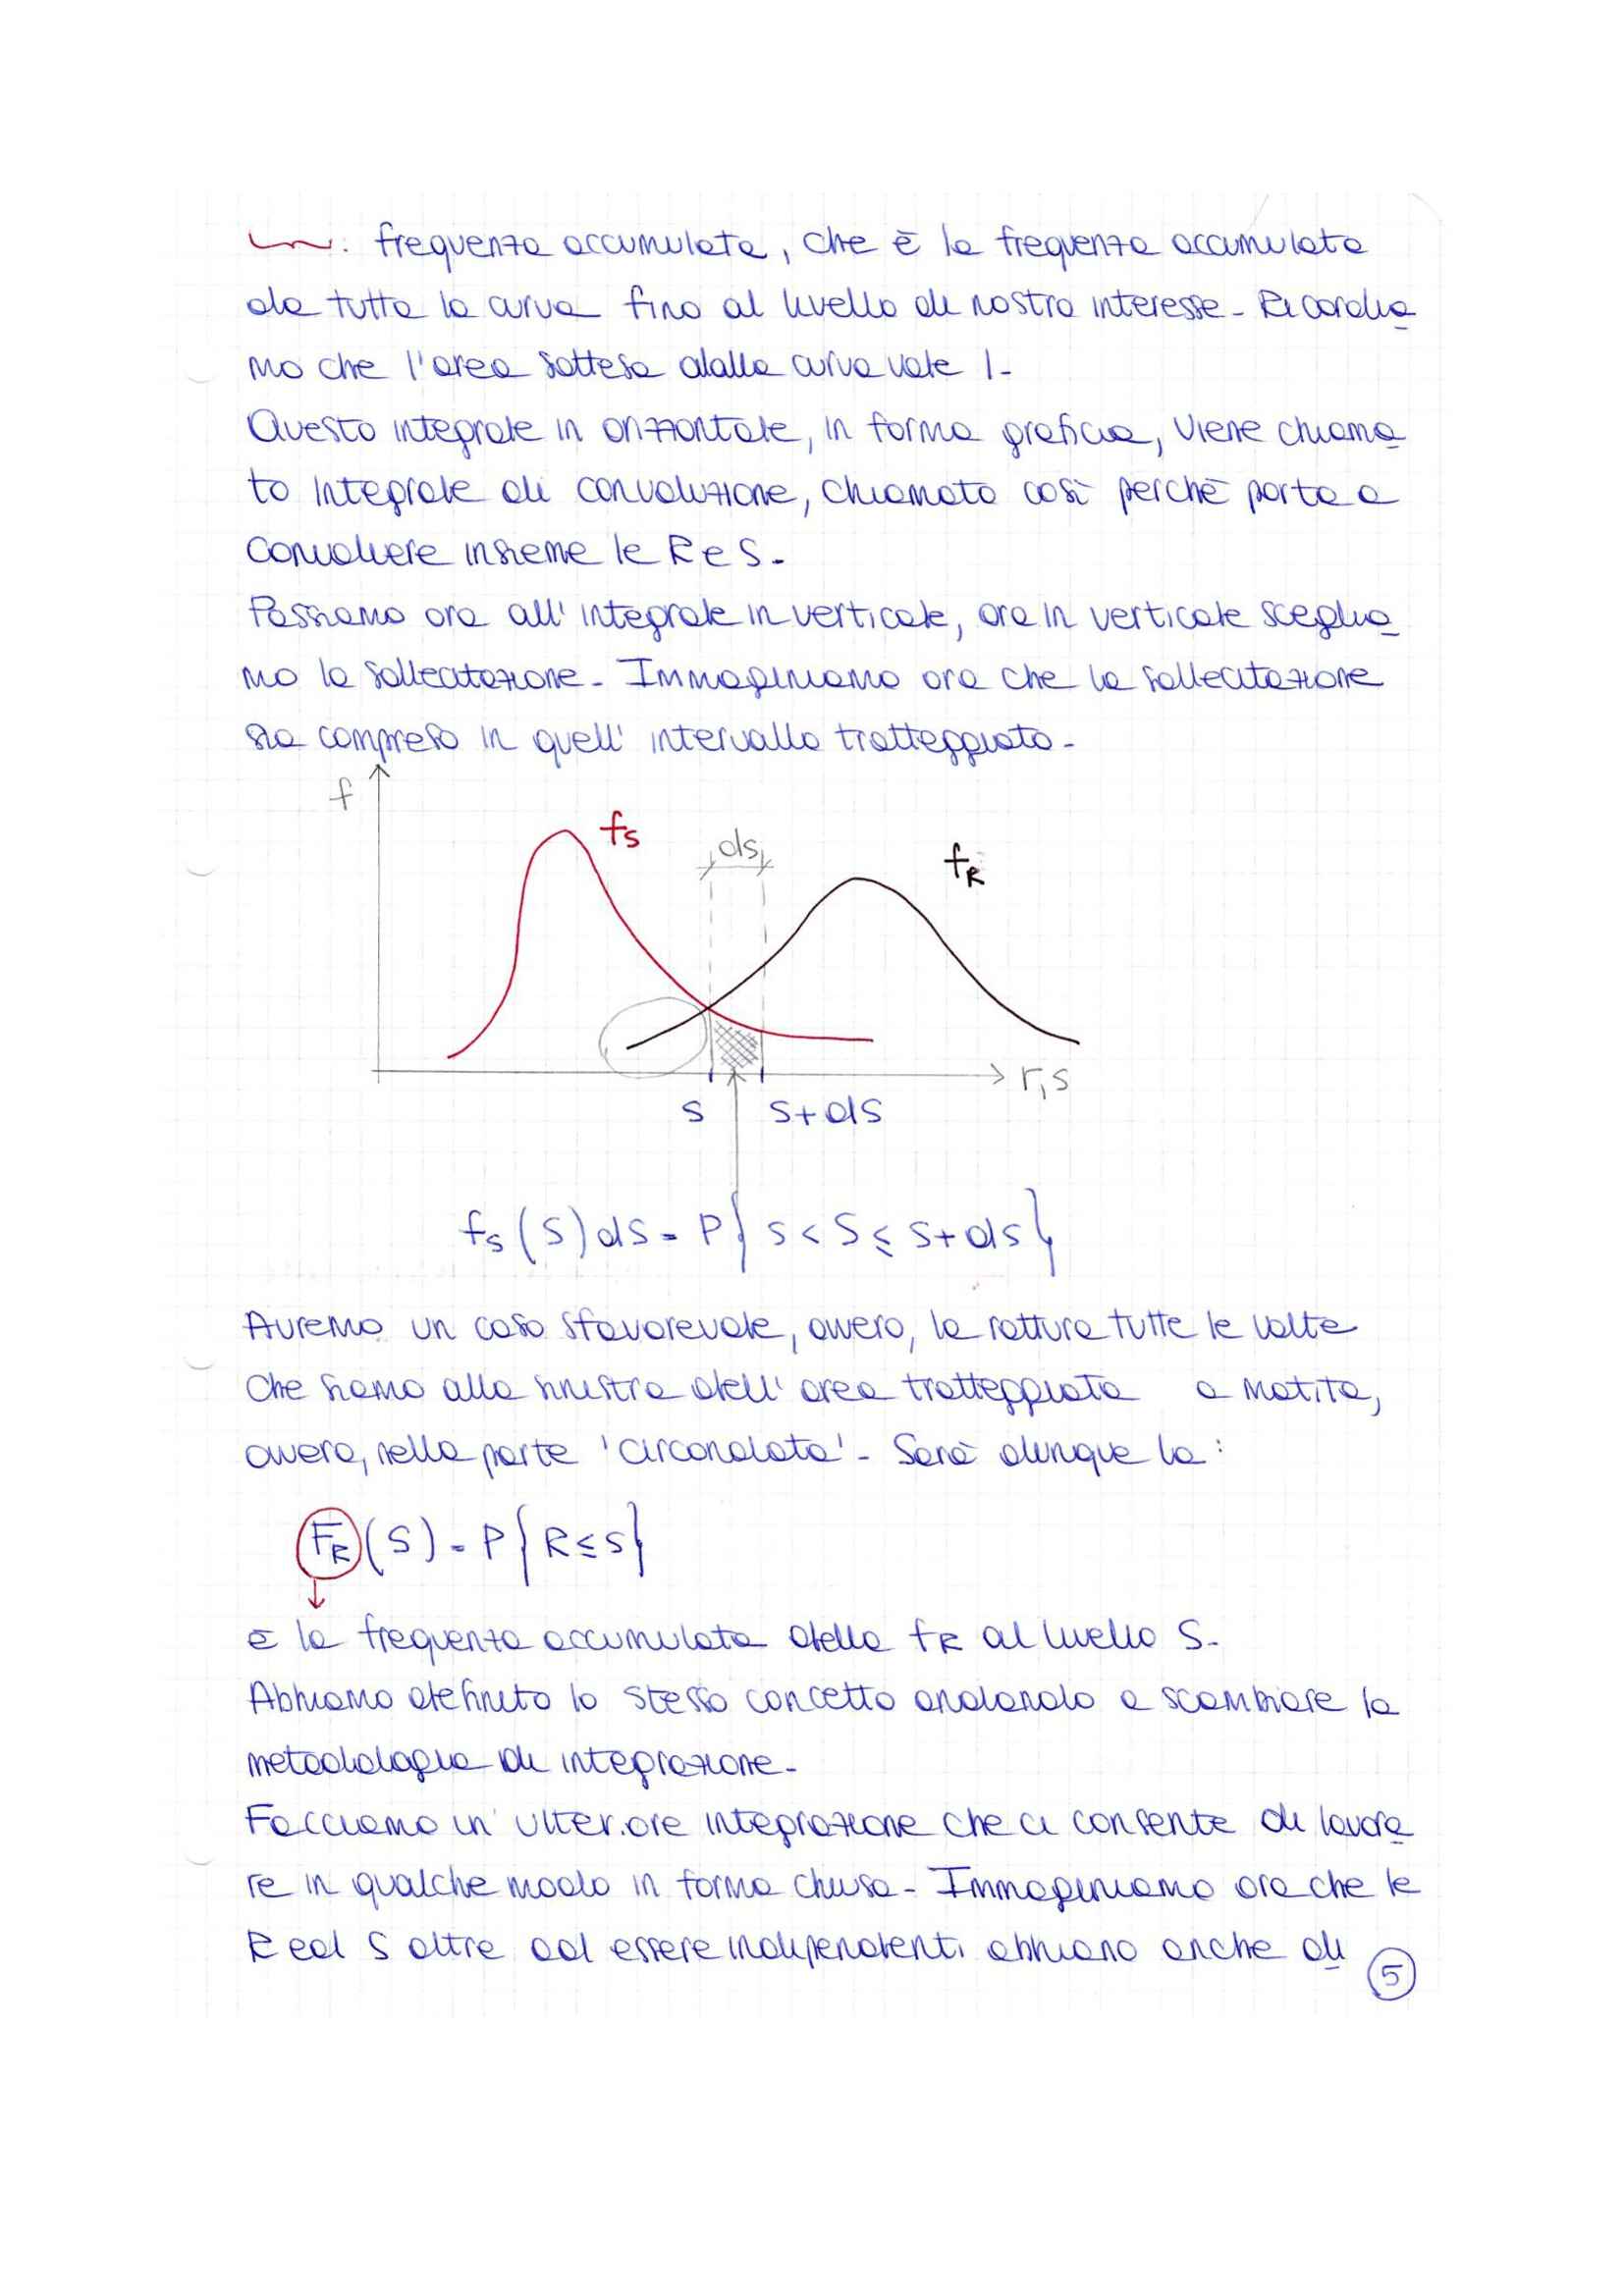 : frequenza accumulata, che è la frequenza accumulata
da tutta la curva fino al livello di nostro interesse - Ricordia
mo che l'area sottesa dalla curva vale 1 -
Questo integrale in orizzontale, in forma grafica, viene chiama
to integrale di convoluzione, chiamato così perchè porta a
convolvere insieme le R e S -
Passiamo ora all'integrale in verticale, ora in verticale sceglia
mo la sollecitazione - Immaginiamo ora che la sollecitazione
sia compreso in quell'intervallo tratteggiato -
f
fs
ds
fR
r,s
s
s+ds
fs(s)ds = P{s < S ≤ s+ds}
Avremo un caso sfavorevole, ovvero, la rottura tutte le volte
che siamo alla sinistra dell'area tratteggiata a matita,
ovvero, nella parte 'circondata' - Sarà dunque la :
FR(s) = P{R ≤ s}
è la frequenza accumulata della fR al livello S -
Abbiamo definito lo stesso concetto andando a scambiare la
metodologia di integrazione -
Facciamo un'ulteriore integrazione che ci consente di lavora
re in qualche modo in forma chiusa - Immaginiamo ora che le
R ed S oltre ad essere indipendenti abbiano anche di
5